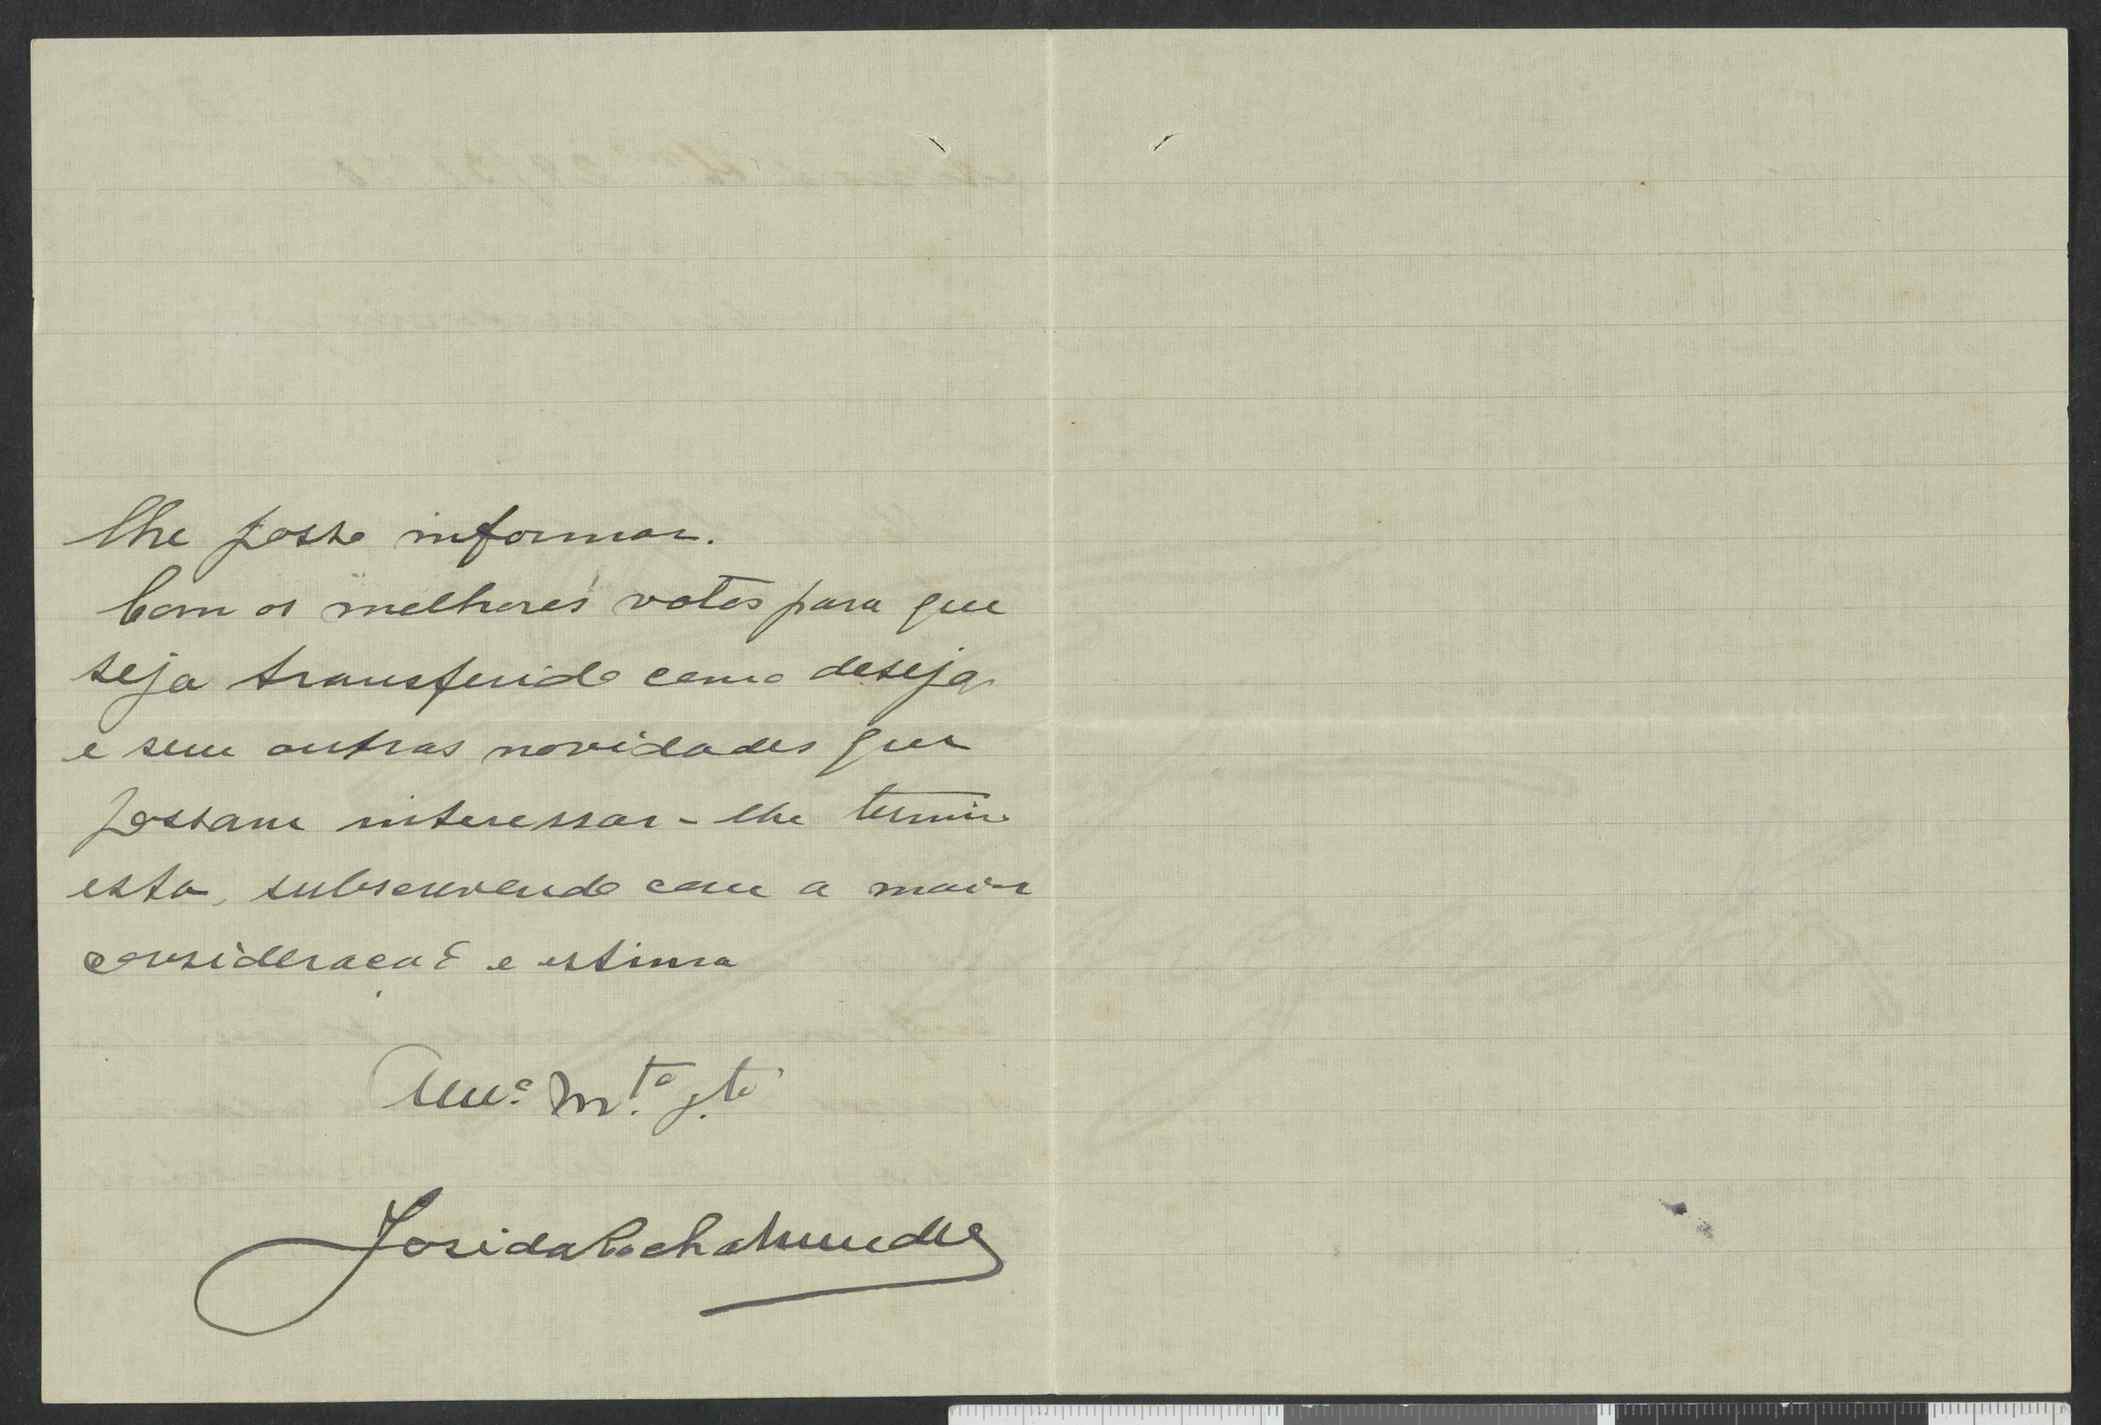 lhe posso informar.
Com os melhores votos para que
seja transferido como deseja
e sem outras novidades que
possam interessar-lhe termino
esta, subscrevendo com a maior
consideração e estima
Am.º M.to g.to
José da Rocha Mendes